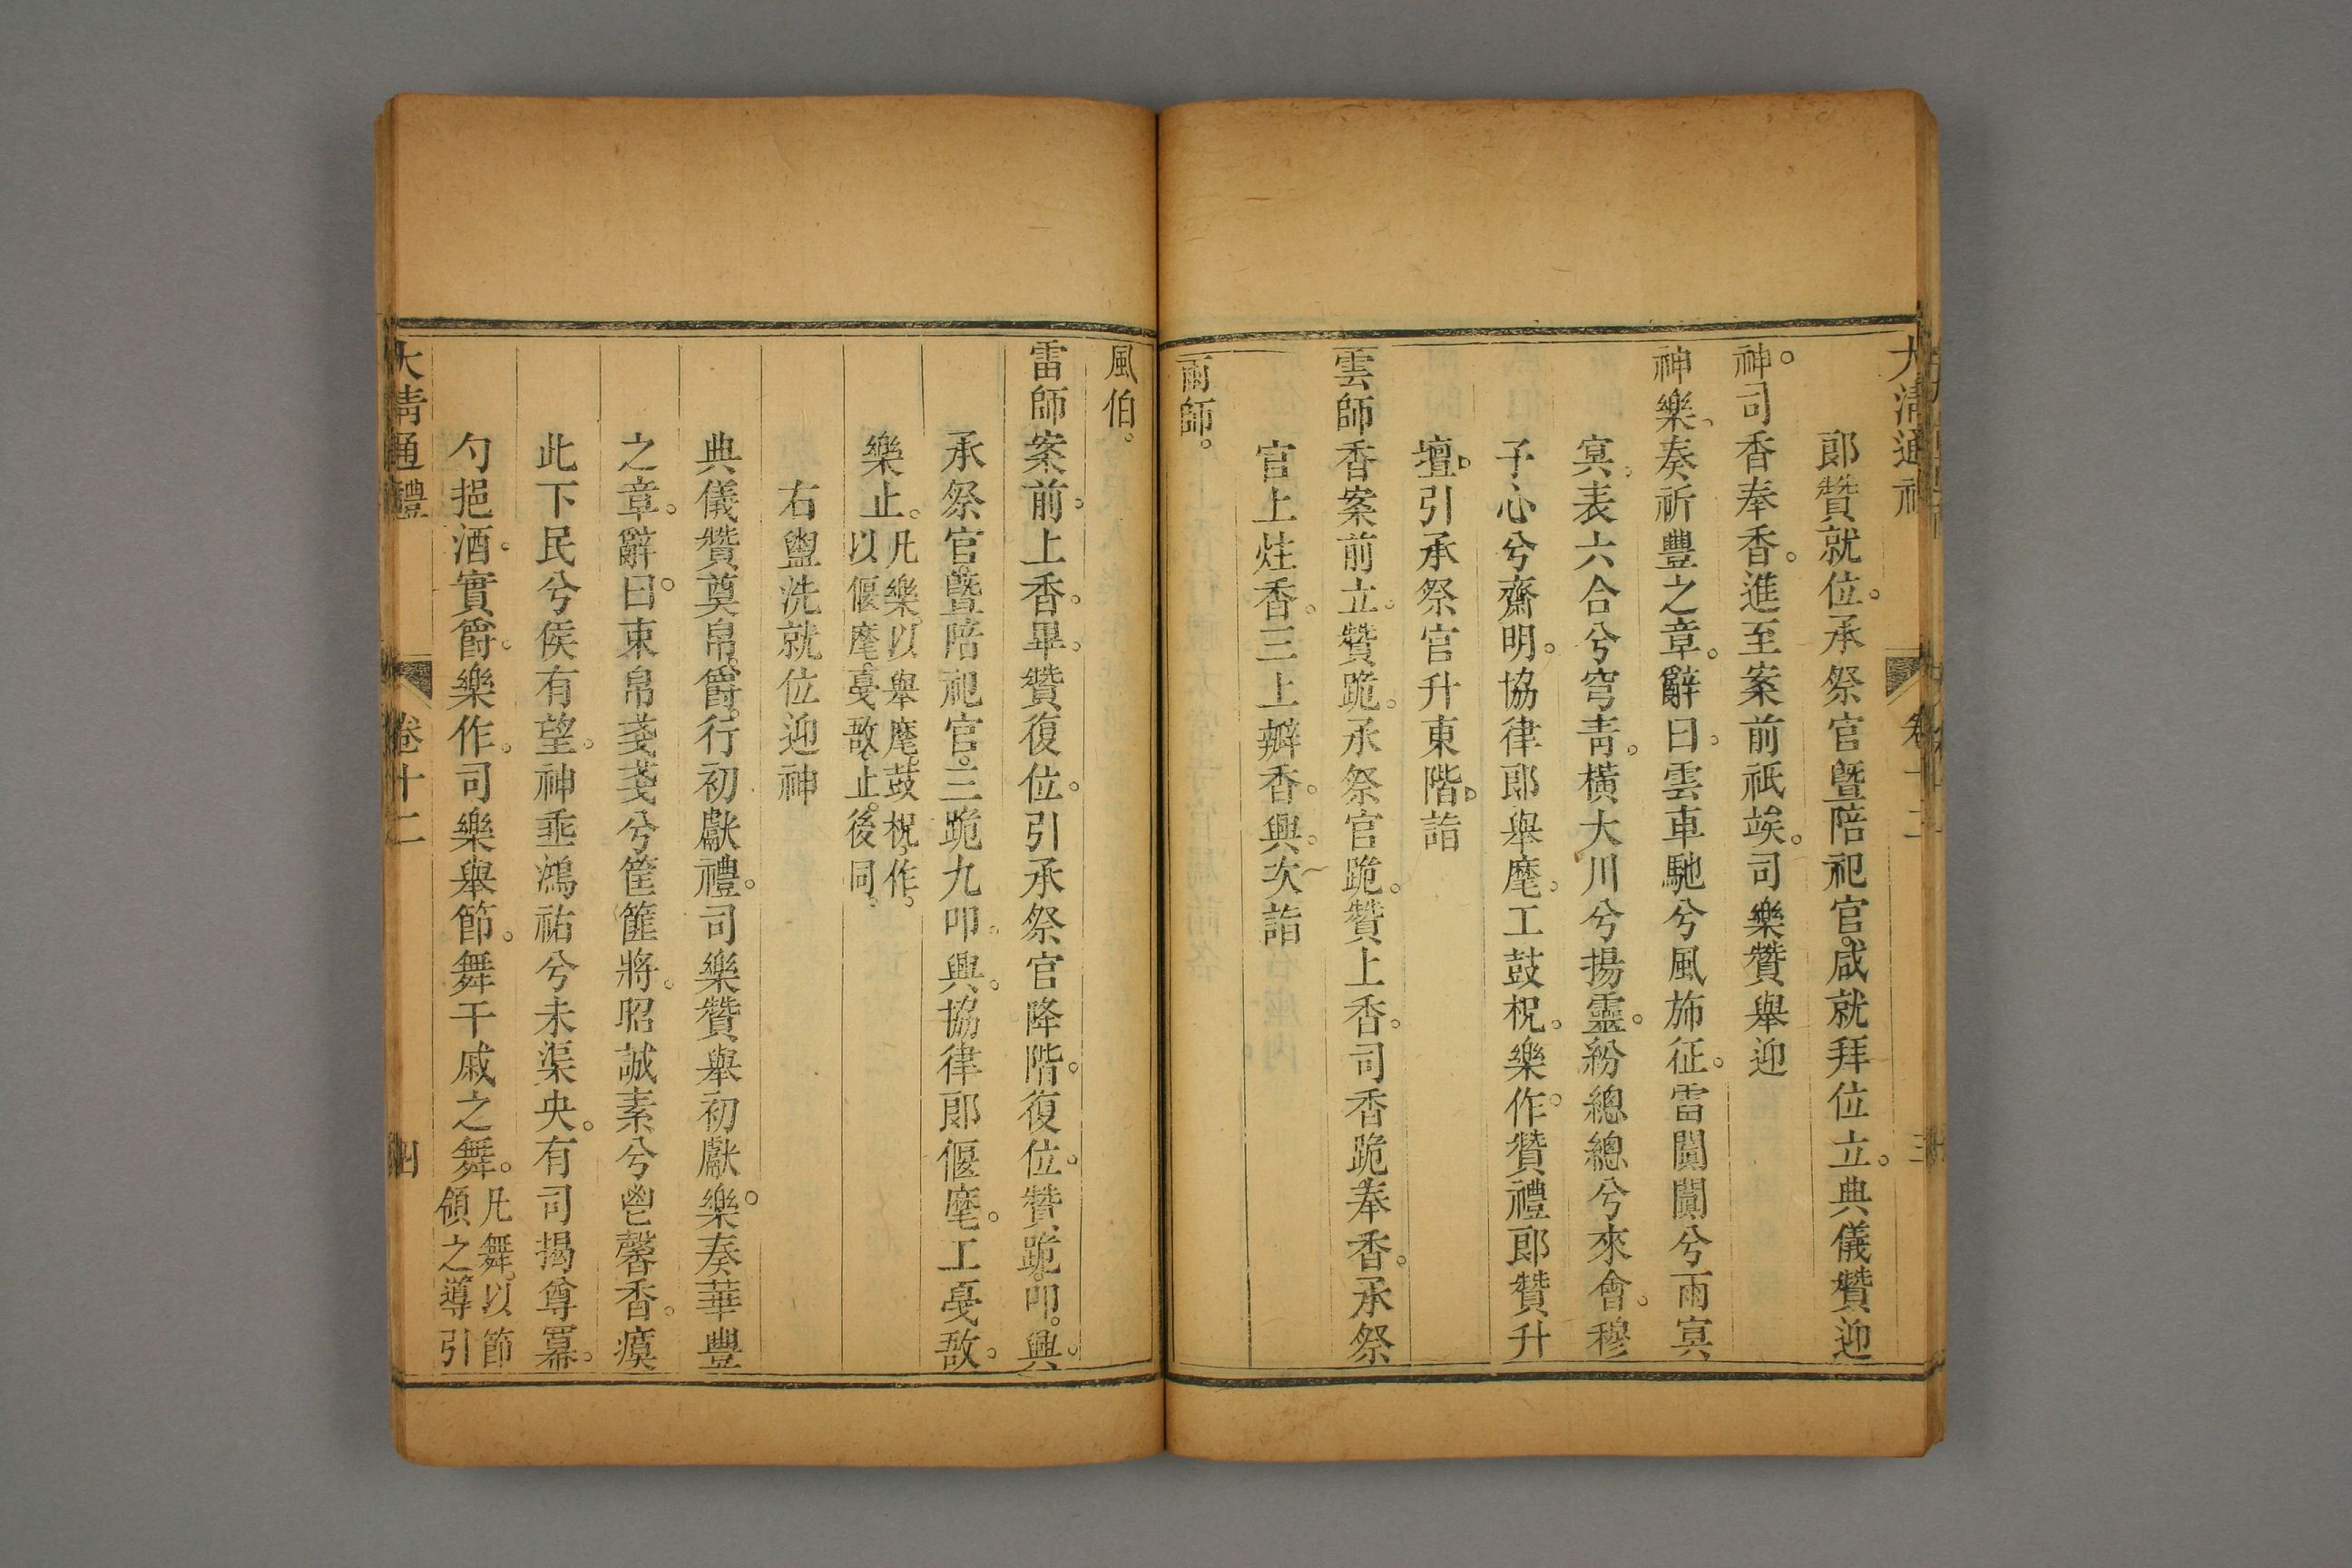 大清通禮 卷十二 三
郎贊就位。承祭官暨陪祀官。咸就拜位立。典儀贊迎
神。司香奉香。進至案前祗竢。司樂贊舉迎
神樂。奏祈豐之章。辭曰。雲車馳兮風斾征。雷闐闐兮雨冥
冥。表六合兮穹靑。橫大川兮揚靈。紛總總兮來會。穆
予心兮齋明。協律郎舉麾。工鼓柷。樂作。贊禮郎贊升
壇。引承祭官升東階。詣
雲師香案前立。贊跪。承祭官跪。贊上香。司香跪奉香。承祭
官上炷香。三上瓣香。興。次詣
雨師。
風伯。
雷師案前。上香。畢。贊復位。引承祭官降階。復位。贊跪。叩。興。
承祭官。暨陪祀官。三跪九叩。興。協律郎偃麾。工戛敔。
樂止。凡樂。以舉麾。鼓柷。作。
以偃麾。戛敔。止。後同。
右盥洗就位迎神
典儀贊奠帛。爵。行初獻禮。司樂贊舉初獻樂。奏華豐
之章。辭曰。束帛戔戔兮筐篚將。昭誠素兮鬯馨香。瘼
此下民兮徯有望。神垂鴻祐兮未渠央。有司揭尊羃。
勺挹酒。實爵。樂作。司樂舉節。舞干戚之舞。凡舞。以節
領之導引
大清通禮 卷十二 四